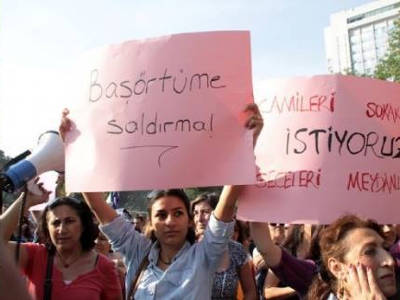 Başörtüme
saldırma!
CAMİLERİ SOKA
İSTİYORUZ
GECELERİ MEYDANL